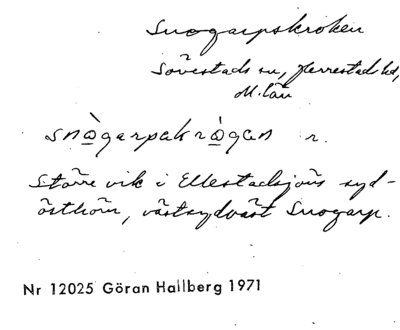 Snogarpskroken
Sövestads sn, Herrestads hd,
M. län
snò̲garpskrò̲gən r.
Större vik i Ellestadsjöns syd-
östhörn, västsydväst Snogarp.
Nr 12025 Göran Hallberg 1971